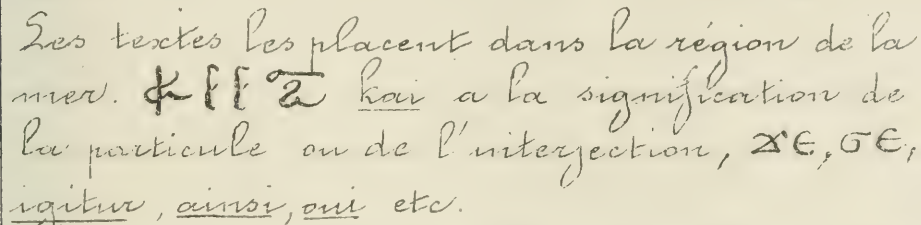 Les textes les placent dans la région de la
mer. kai a la signification de
la particule ou de l'interjection, ϫⲉ, ϭⲉ,
igitur, ainsi, oui etc.